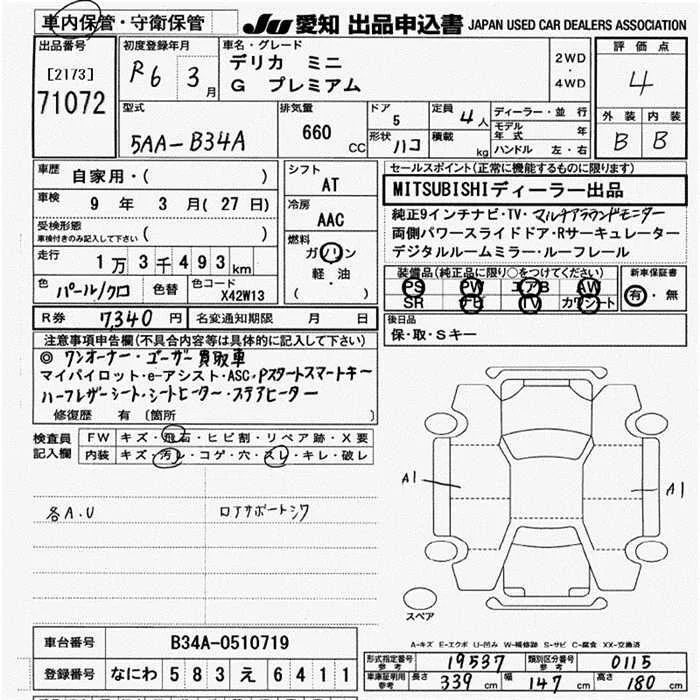 車内保管・守衛保管
JU 愛知 出品申込書 JAPAN USED CAR DEALERS ASSOCIATION
出品番号 [2173] 71072
初度登録年月 R6 3 月
車名・グレード デリカ ミニ G プレミアム
2WD ・ 4WD
評価点 4
外装 B 内装 B
型式 5AA-B34A
排気量 660 CC
ドア 5 形状 ハコ
定員 4 人 積載 kg
ディーラー・並行
モデル年式 年
ハンドル 左・右
車歴 自家用・( )
車検 9 年 3 月( 27 日)
受検形態 車検付きのみ記入して下さい ( )
走行 1万 3千 4 9 3 km
色 パール/クロ 色替 色コード X42W13
シフト AT
冷房 AAC
燃料 ガソリン 軽・油 ( )
セールスポイント(正常に機能するものに限ります)
MITSUBISHIディーラー出品
純正9インチナビ・TV・マルチアラウンドモニター
両側パワースライドドア・Rサーキュレーター
デジタルルームミラー・ルーフレール
装備品(純正品に限り○をつけてください)
PS PW エアB AW
SR ナビ TV カワシート
新車保証書 有・無
R券 7,340 円 名変通知期限 月 日
後日品 保・取・Sキー
注意事項申告欄(不具合内容等は具体的に記入して下さい)
◎ ワンオーナー・ユーザー買取車
マイパイロット・e-アシスト・ASC・Pスタートスマートキー
ハーフレザーシート・シートヒーター・ステアヒーター
修復歴 有 〔箇所 〕
検査員記入欄
FW キズ・飛石・ヒビ割・リペア跡・X要
内装 キズ・汚レ・コゲ・穴・スレ・キレ・破レ
各A.U
ロアサポートシワ
A1
A1
スペア
A-キズ E-エクボ U-凹み W-補修跡 S-サビ C-腐食 XX-交換済
車台番号 B34A-0510719
登録番号 なにわ 5 8 3 え 6 4 1 1
形式指定番号 参考 19537 類別区分番号 参考 0115
車庫証明用 参考 長さ 339 cm 幅 147 cm 高さ 180 cm